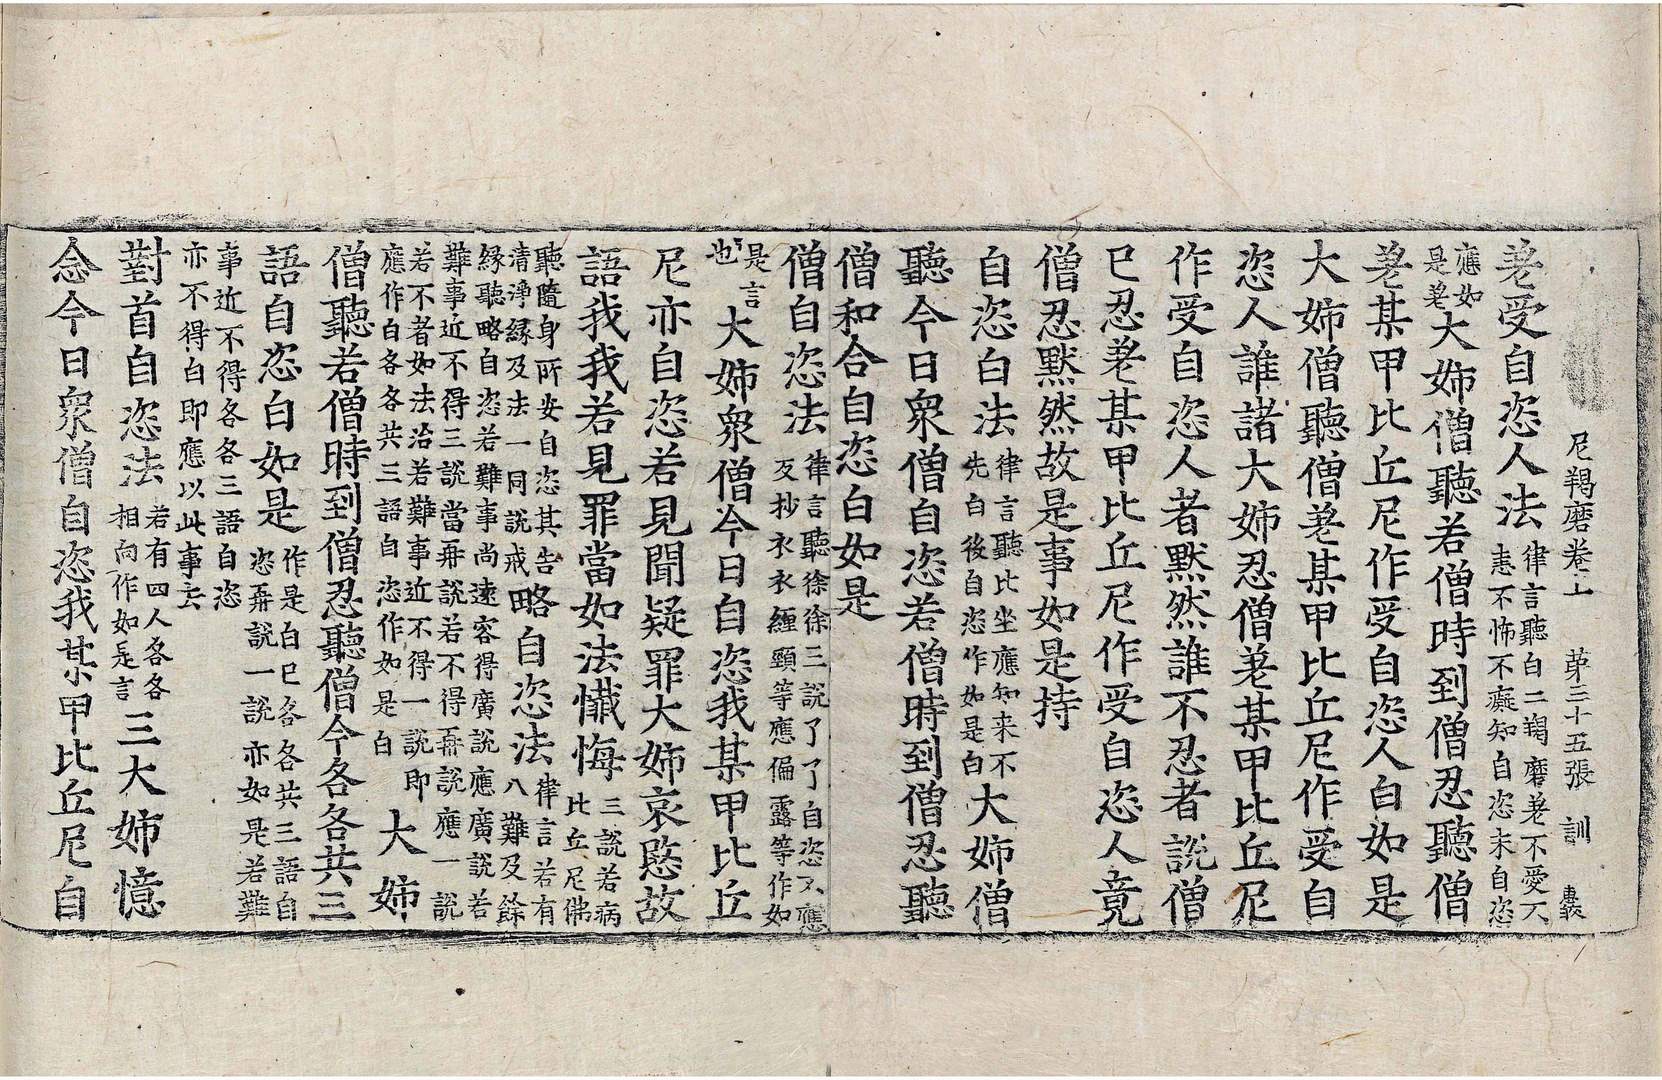 尼羯磨卷上 第三十五張 訓
差受自恣人法律言聽白二羯磨差不愛不恚不怖不癡知自恣未自恣
應如是差大姊僧聽若僧時到僧忍聽僧
差某甲比丘尼作受自恣人白如是
大姊僧聽僧差某甲比丘尼作受自
恣人誰諸大姊忍僧差某甲比丘尼
作受自恣人者默然誰不忍者說僧
已忍差某甲比丘尼作受自恣人竟
僧忍默然故是事如是持
自恣白法律言聽比坐應知来不来先白後自恣作如是白大姊僧
聽今日衆僧自恣若僧時到僧忍聽
僧和合自恣白如是
僧自恣法律言聽徐徐三說了了自恣不應反抄衣衣纏頸等應偏露等作如
是言也大姊衆僧今日自恣我某甲比丘
尼亦自恣若見聞疑罪大姊哀愍故
語我我若見罪當如法懺悔三說若病比丘尼佛
聽隨身所安自恣其告清淨緣及法一同說戒略自恣法律言若有八難及餘
緣聽略自恣若難事尚遠容得廣說應廣說若難事近不得三說當再說若不得再說應一說
若不者如法治若難事近不得一說即應作白各各共三語自恣作如是白大姊
僧聽若僧時到僧忍聽僧今各各共三
語自恣白如是作是白已各各共三語自恣再說一說亦如是若難
事近不得各各三語自恣亦不得白即應以此事去
對首自恣法若有四人各各相向作如是言三大姊憶
念今日衆僧自恣我某甲比丘尼自